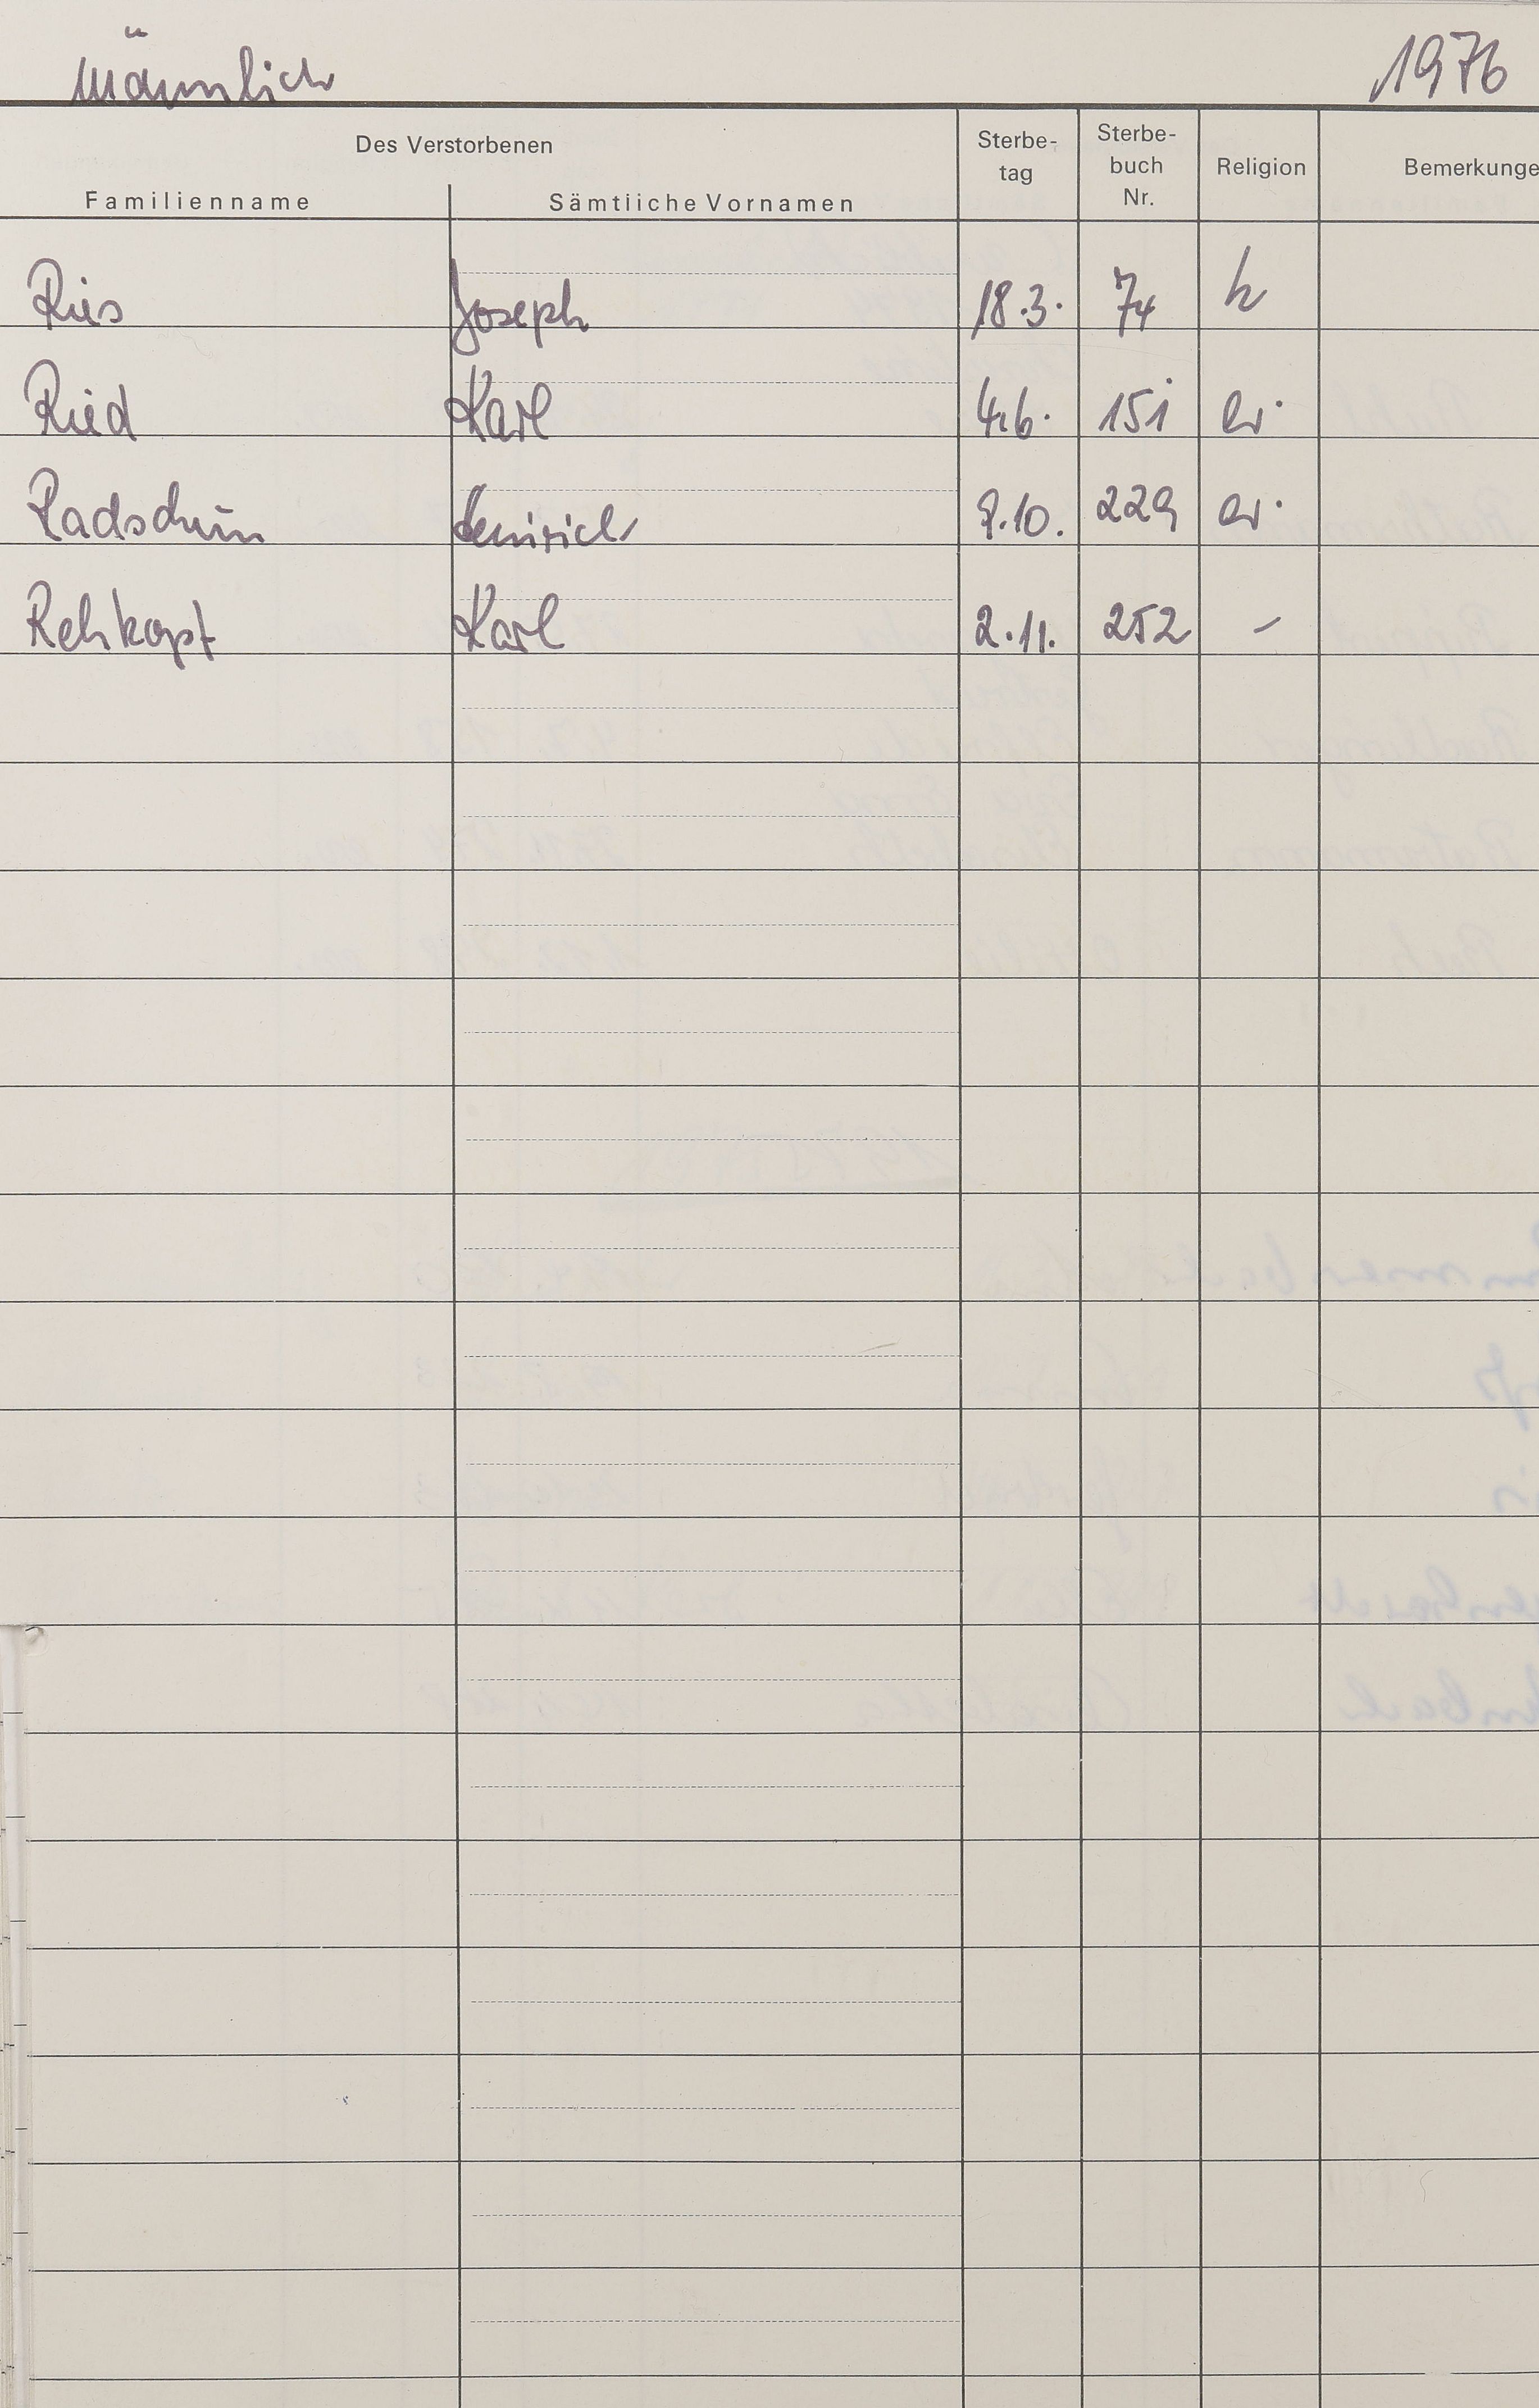 männlich 1976
Des Verstorbenen
Familienname Sämtliche Vornamen
Sterbe-
tag
Sterbe-
buch
Nr.
Religion
Bemerkunge
Ries Joseph 18.3. 74 k
Ried Karl 4.6. 151 ev.
Radschun Heinrich 9.10. 229 ev.
Rehkopf Karl 2.11. 252 –